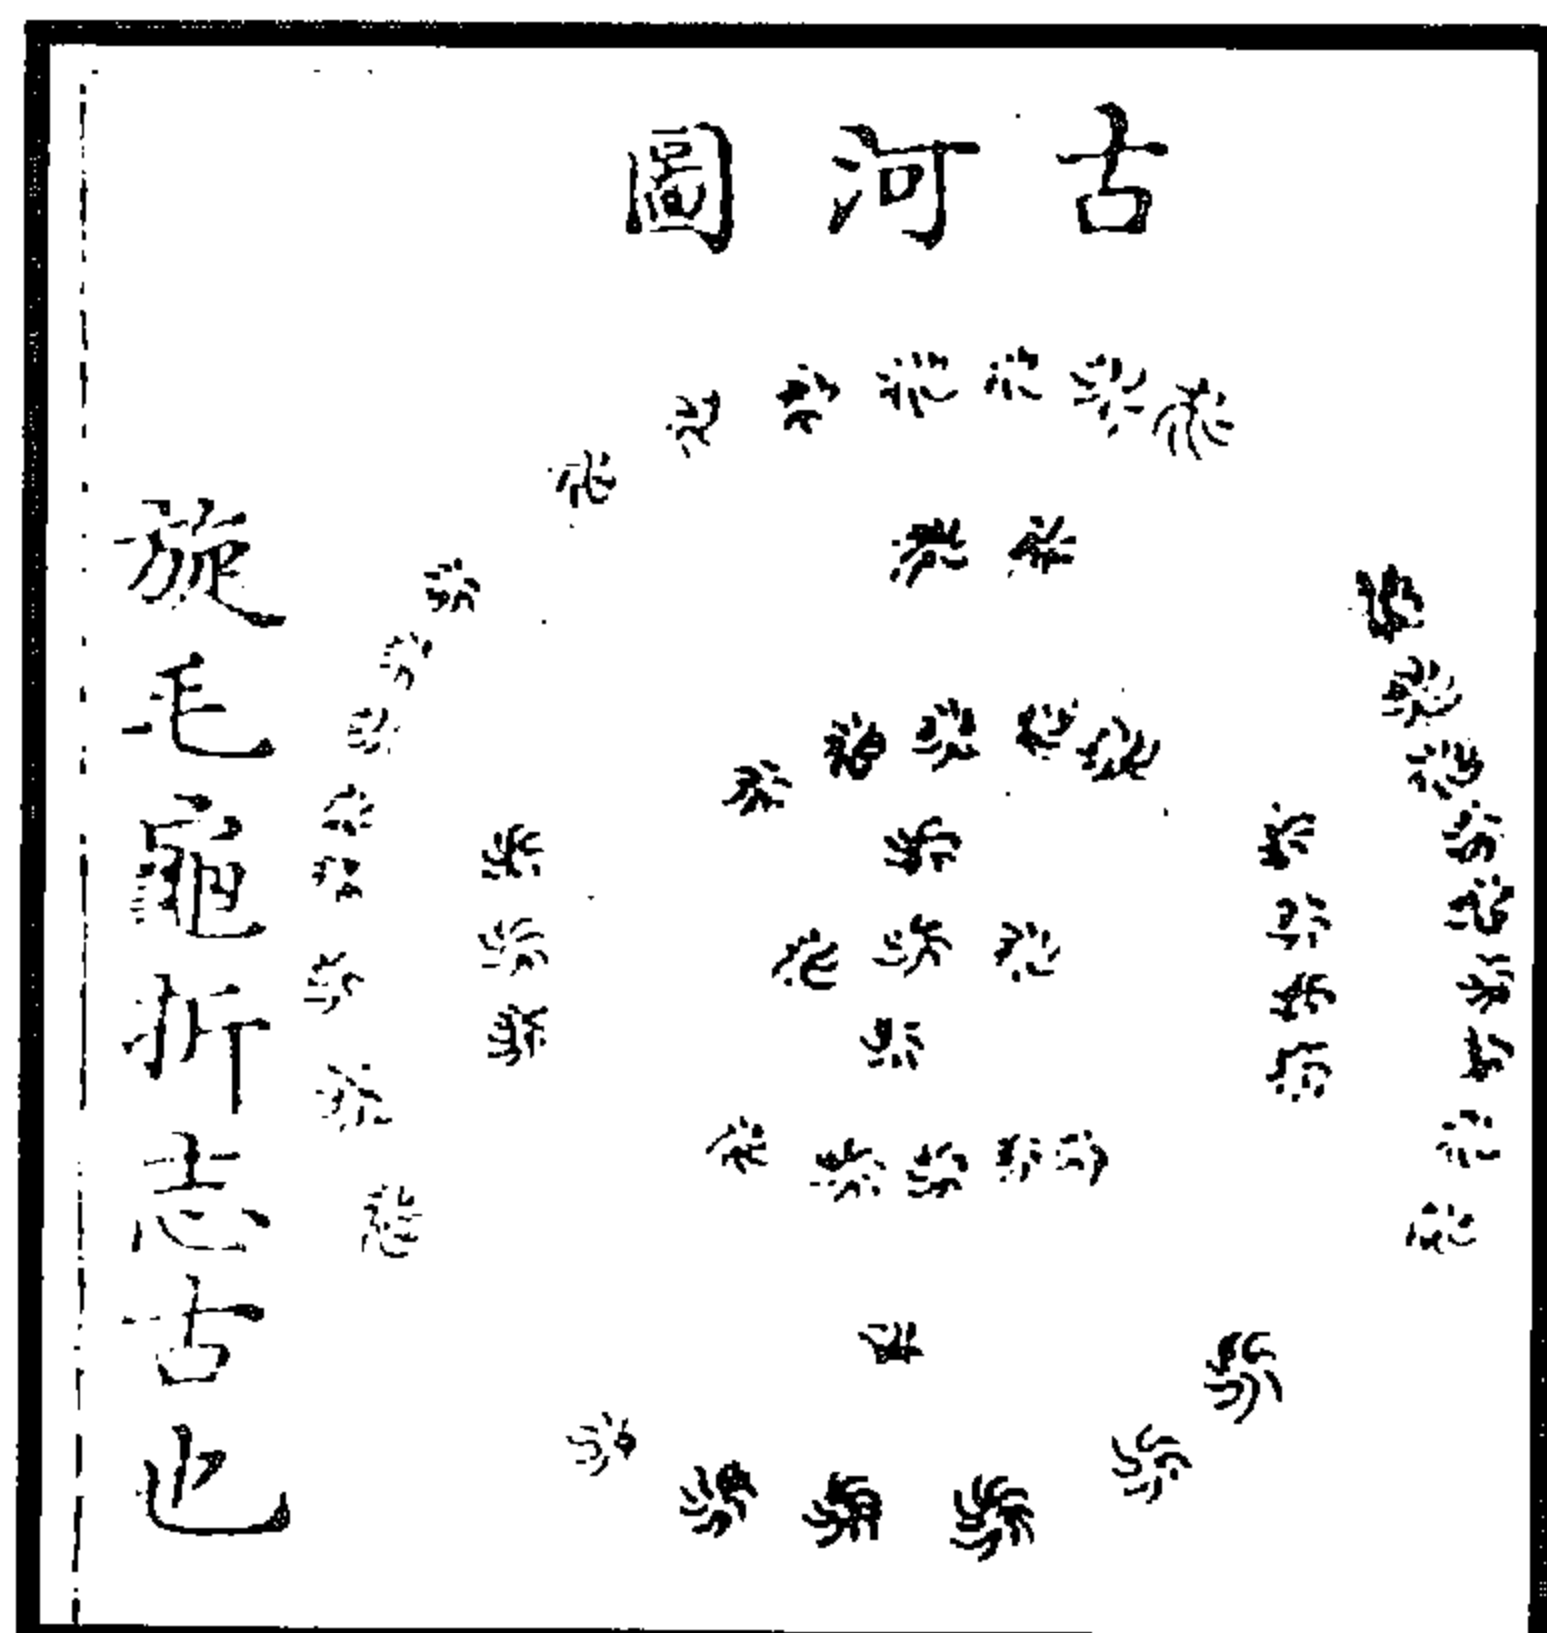 古河圖
旋毛龜折志古也